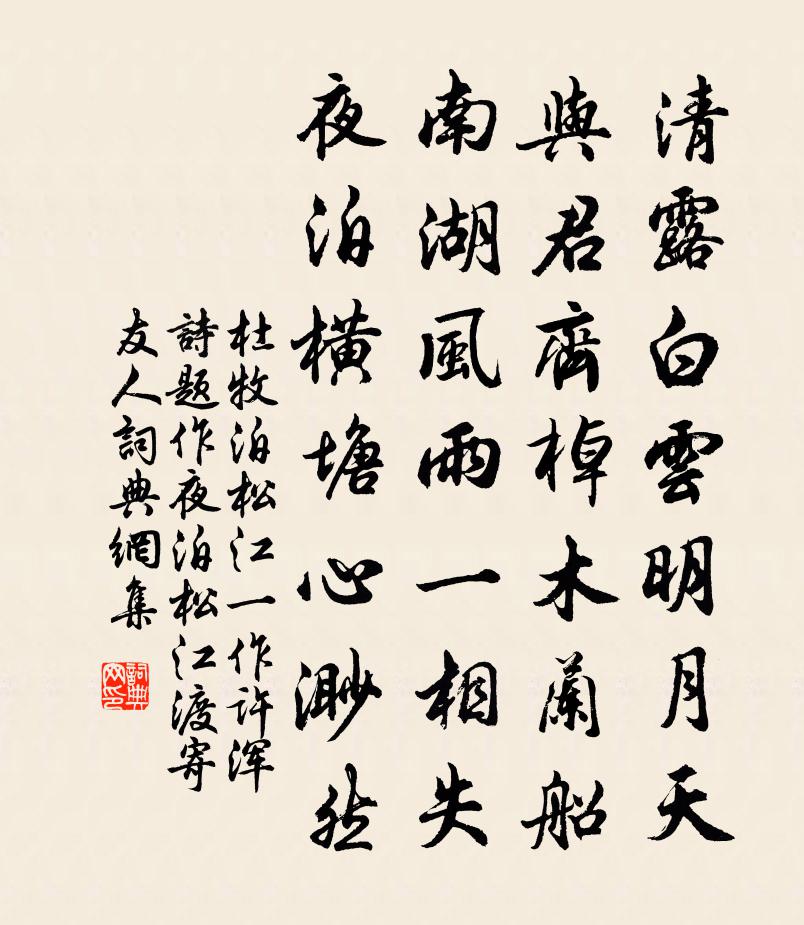 清露白雲明月天
與君齊棹木蘭船
南湖風雨一相失
夜泊橫塘心渺然
杜牧泊松江一作許渾
詩題作夜泊松江渡寄
友人詞典網集
詞典
网印